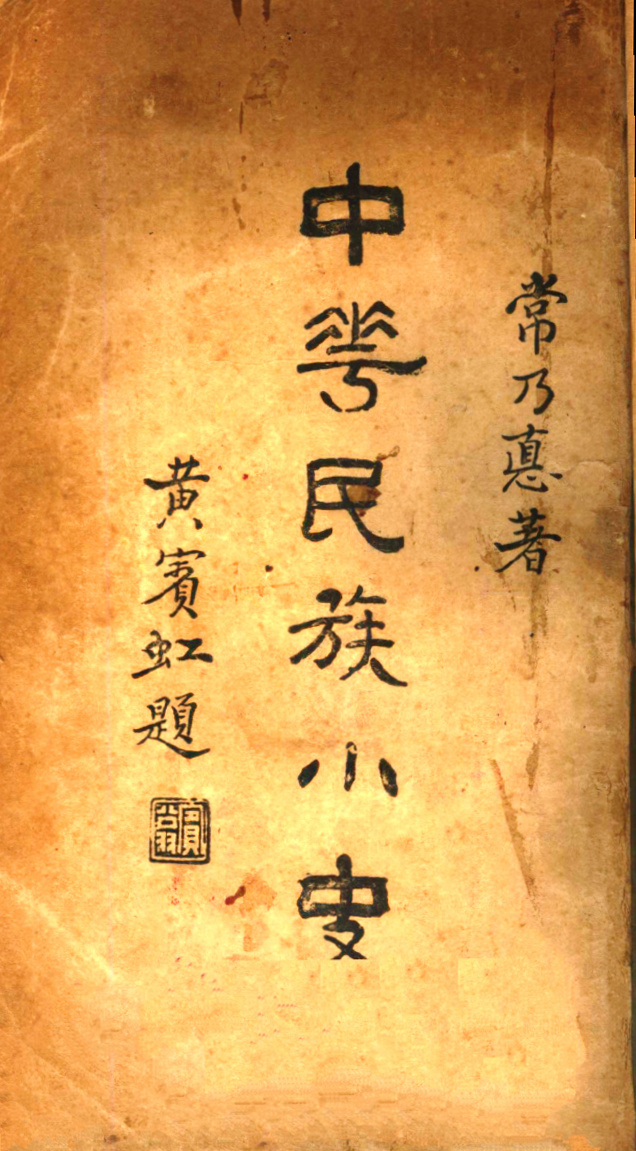 常乃悳著
中華民族小史
黃賓虹題
賓翁